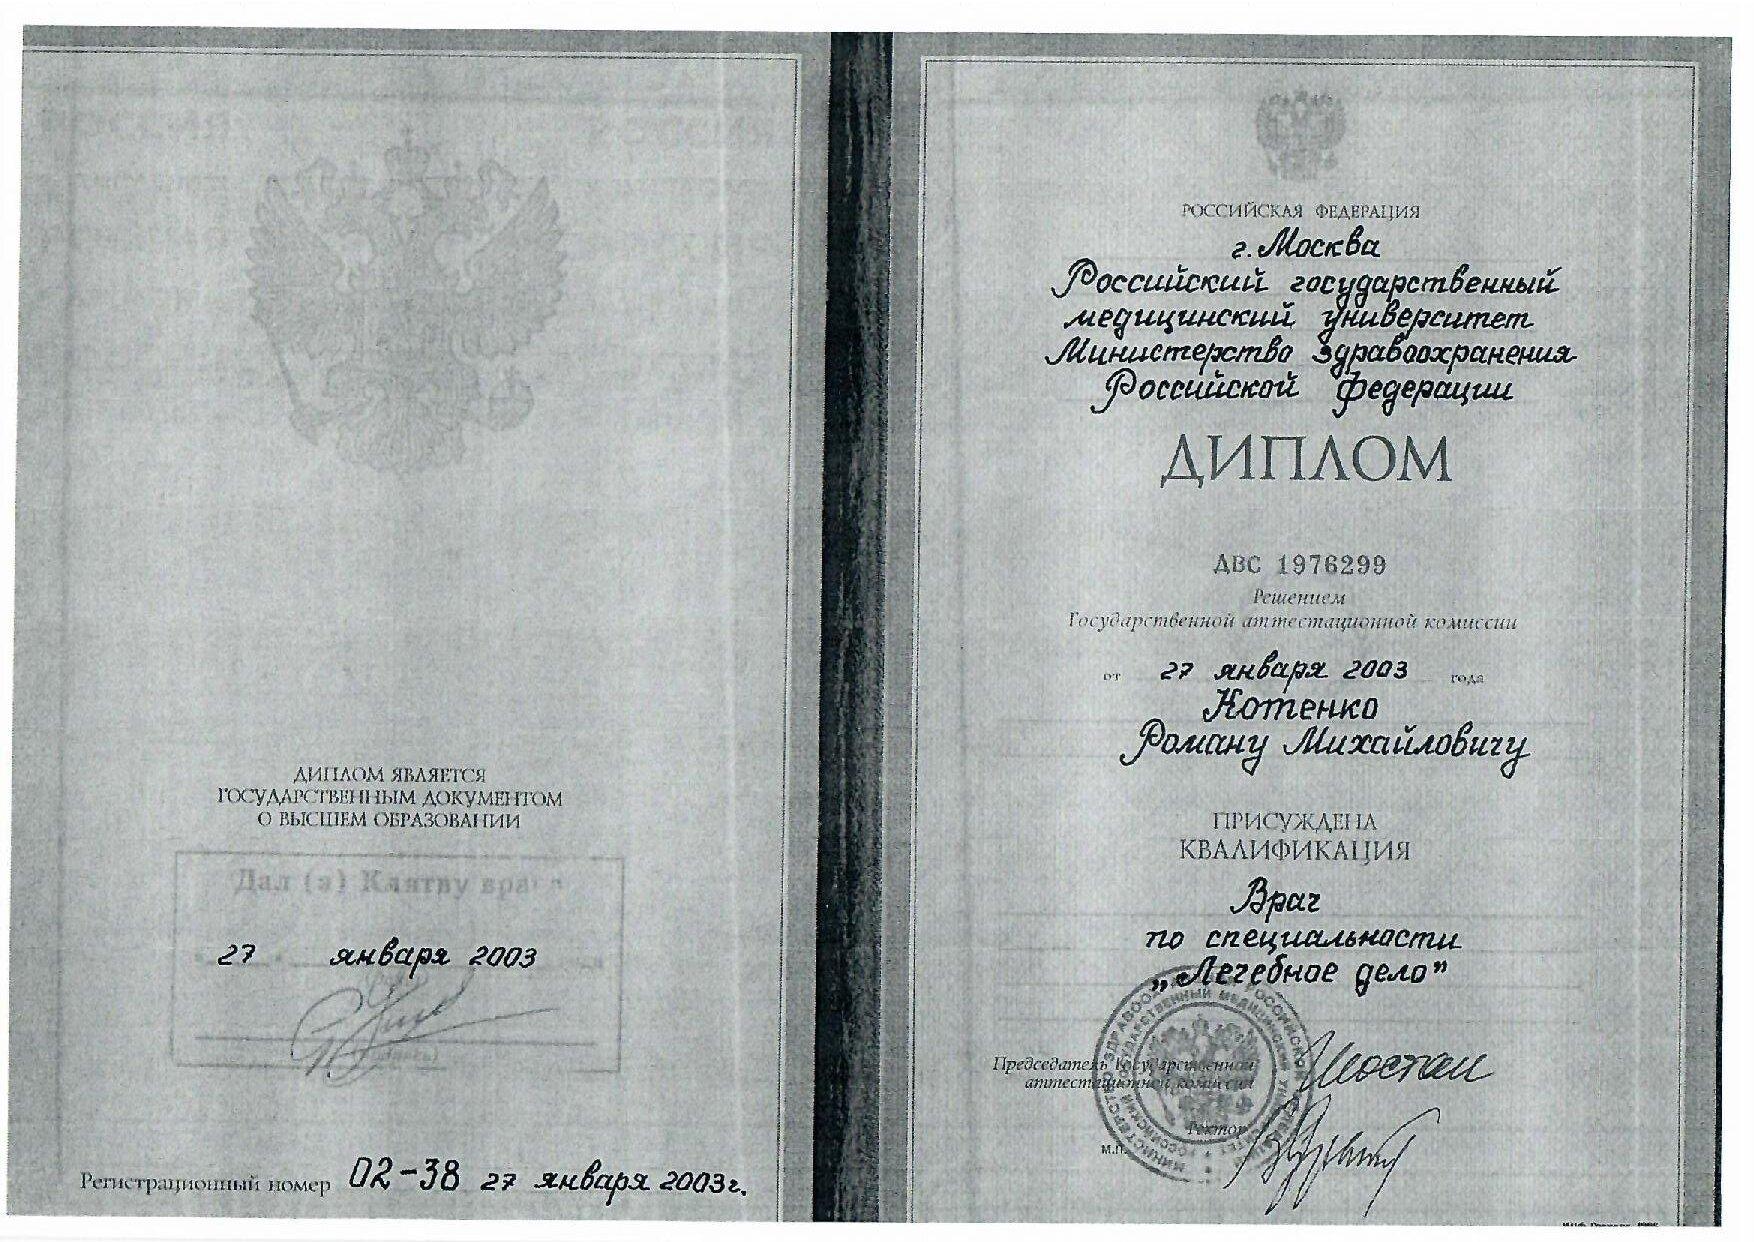 ДИПЛОМ ЯВЛЯЕТСЯ
ГОСУДАРСТВЕННЫМ ДОКУМЕНТОМ
О ВЫСШЕМ ОБРАЗОВАНИИ
Дал (а) Клятву врача
27 января 2003
Регистрационный номер 02-38 27 января 2003г.
РОССИЙСКАЯ ФЕДЕРАЦИЯ
г. Москва
Российский государственный
медицинский университет
Министерство здравоохранения
Российской федерации
ДИПЛОМ
ДВС 1976299
Решением
Государственной аттестационной комиссии
от 27 января 2003 года
Котенко
Роману Михайловичу
ПРИСУЖДЕНА
КВАЛИФИКАЦИЯ
Врач
по специальности
„Лечебное дело"
Председатель Государственной
аттестационной комиссии
Ректор
М.П.